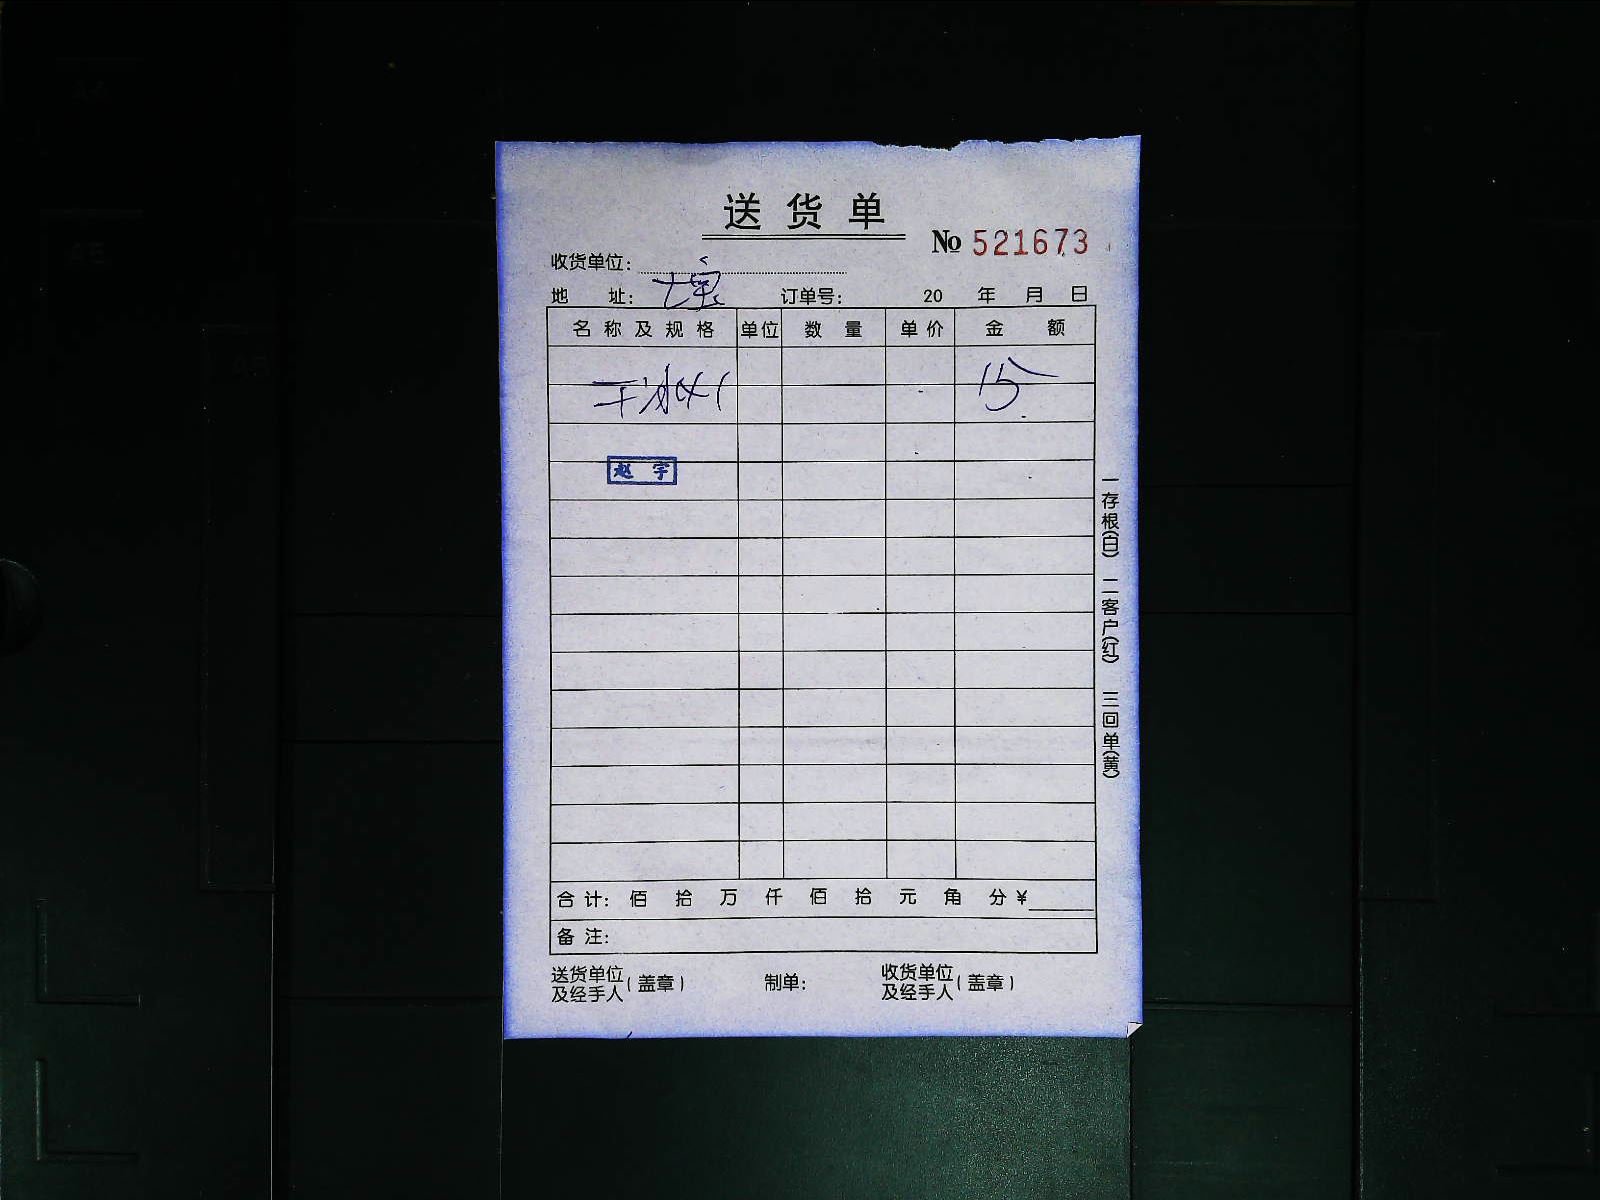 送货单
№ 521673
收货单位：
地 址： 订单号： 20 年 月 日
名称及规格 单位 数量 单价 金额
干冰×1 15
赵宇
合计： 佰 拾 万 仟 佰 拾 元 角 分 ￥
备注：
送货单位及经手人（盖章） 制单： 收货单位及经手人（盖章）
一存根(白) 二客户(红) 三回单(黄)